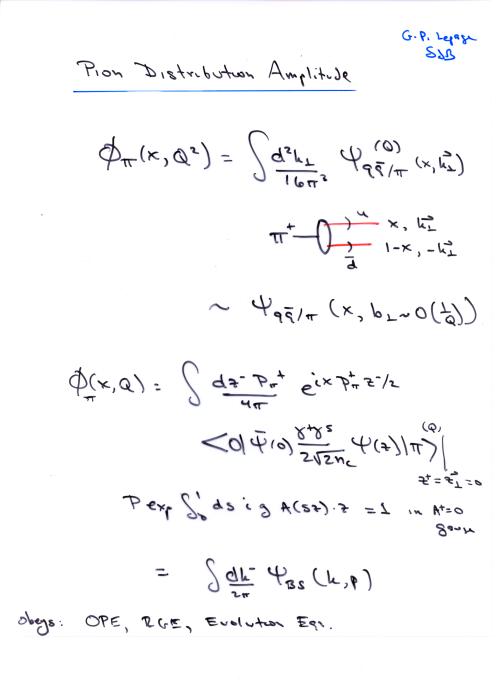 G.P. Lepage
SJB
Pion Distribution Amplitude
ϕ_π(x,Q²) = ∫ d²k⊥/16π² ψ^(Q)_qq̄/π (x,k⃗⊥)
π⁺ u x, k⃗⊥
d̄ 1-x, -k⃗⊥
~ ψ_qq̄/π (x, b⊥ ~ O(1/Q))
ϕ_π(x,Q) = ∫ dz⁻ P_π⁺/4π e^{ix P_π⁺ z⁻/2}
<0| ψ̄(0) γ⁺γ⁵/2√2n_c ψ(z) |π>^(Q) |_{z⁺ = z⃗⊥ = 0}
P exp ∫₀¹ ds i g A(sz)·z = 1 in A⁺=0 gauge
= ∫ dk⁻/2π ψ_BS (k,p)
Obeys: OPE, RGE, Evolution Eqs.